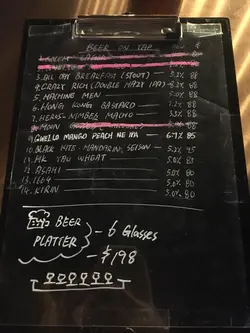 BEER ON TAP % $
3. ALL DAY BREAKFAST (STOUT) 88
4. CRAZY RICH (DOUBLE HAZY IPA) 88
5. MACHINE MEN 80
6. HONG KONG BASTARD 80
7. HEROS- NIMBED MACHO 88
8. MOON
9. GWEILO MANGO PEACH NE IPA 6.7% 85
10. BLACK KITE- MANDARINE SEISON
11. HK YAU WHEAT 5.0% 80
12. ASAHI 5.0% 80
13. 1664 5.0% 80
14. KIRIN 5.0% 80
BEER PLATTER - 6 Glasses
- $198